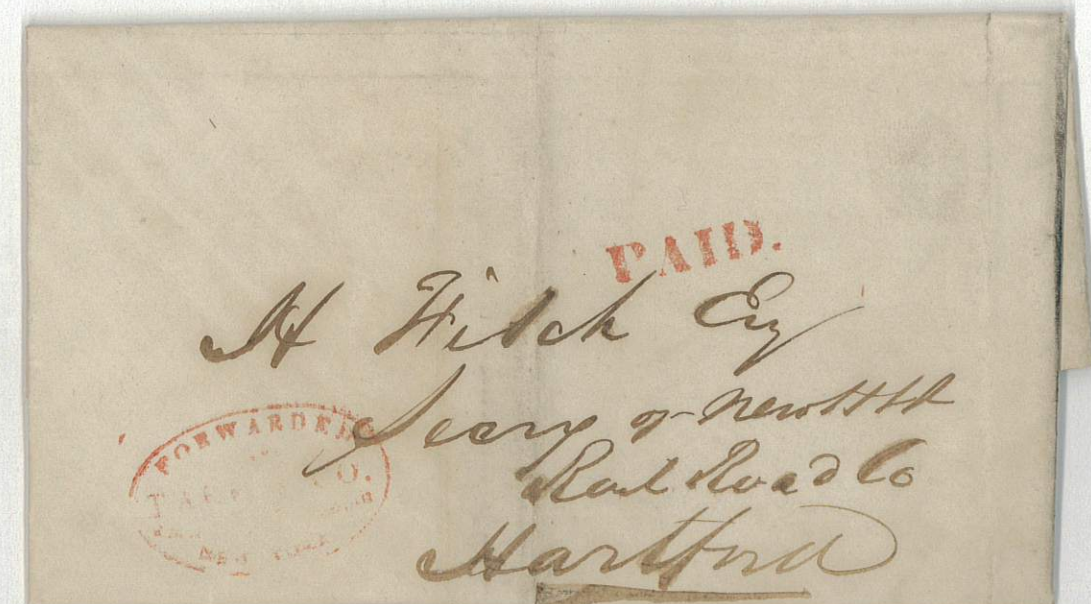 PAID.
H Fitch Esq
Secry of New H H
Rail Road Co
Hartford
FORWARDED
CO.
NEW YORK